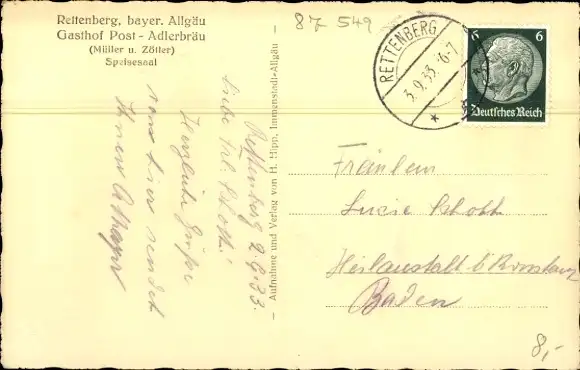 Rettenberg, bayer. Allgäu
Gasthof Post - Adlerbräu
(Müller u. Zötler)
Speisesaal
87 549
RETTENBERG
3.9.33. 6-7
6 6
Deutsches Reich
Rettenberg 2.9.33.
Liebe Frl. Schott!
Herzliche Grüße
von hier sendet
Ihnen
– Aufnahme und Verlag von H. Hipp, Immenstadt-Allgäu –
Fräulein
Lucie Schott
Heilanstalt b.
Baden
8,-